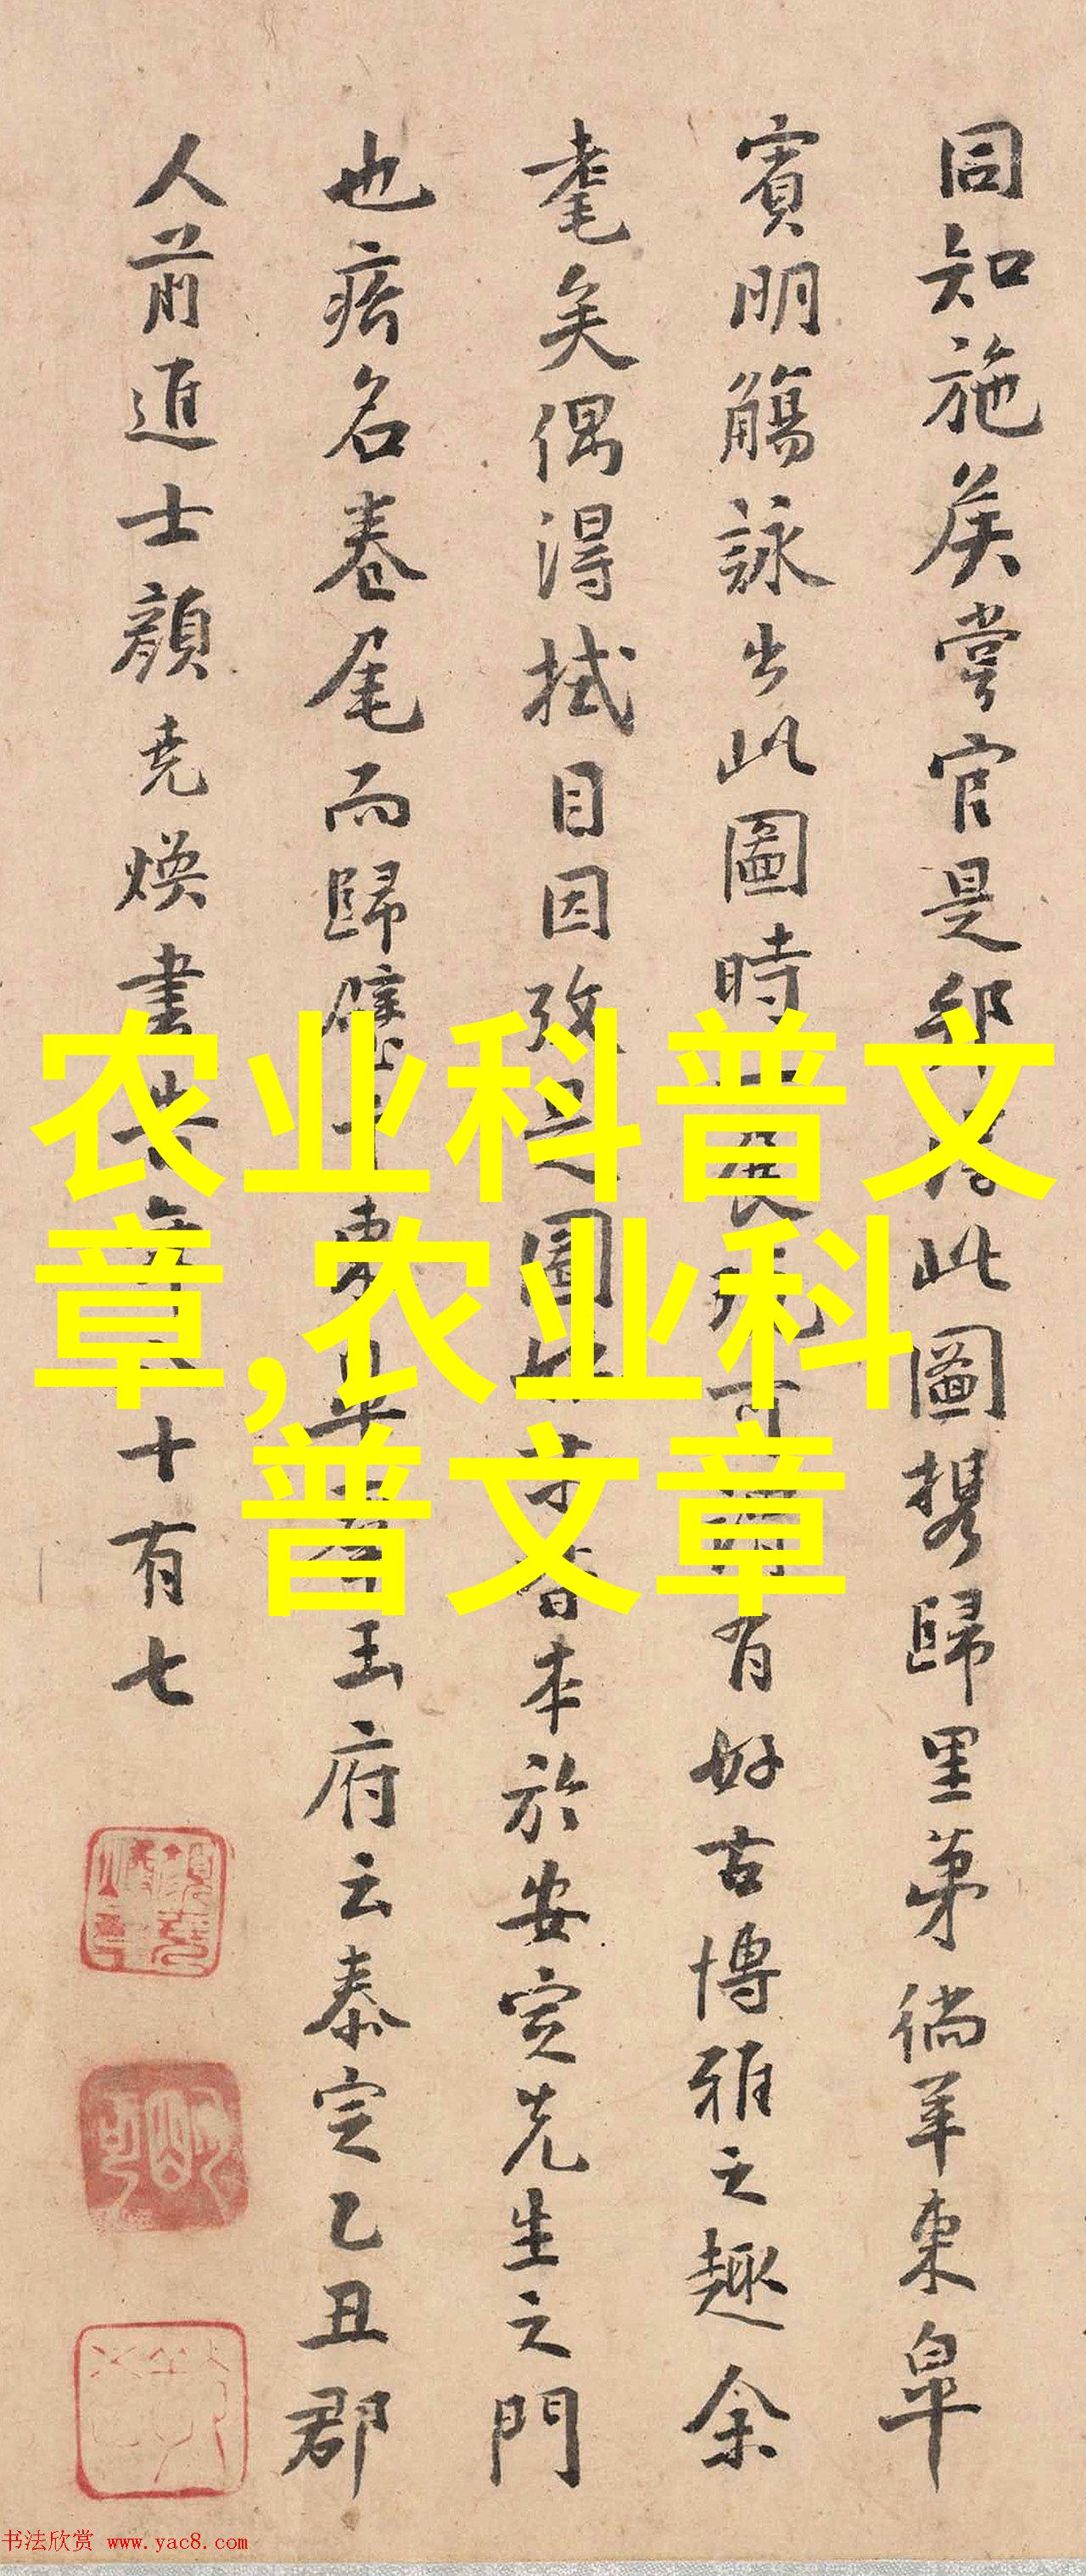 同知施侯嘗官是邦得此圖携歸里第徜羊東皐
賓明觴詠出此圖時展玩可謂有好古博雅之趣余
耄矣偶淂拭目因攷是圖本於安定先生之門
也瘩名卷尾而歸壁東玉府云泰定乙丑郡
人前進士顏堯煥書時年十有七
农业科普文
章,农业科
普文章
书法欣赏 www.yac8.com